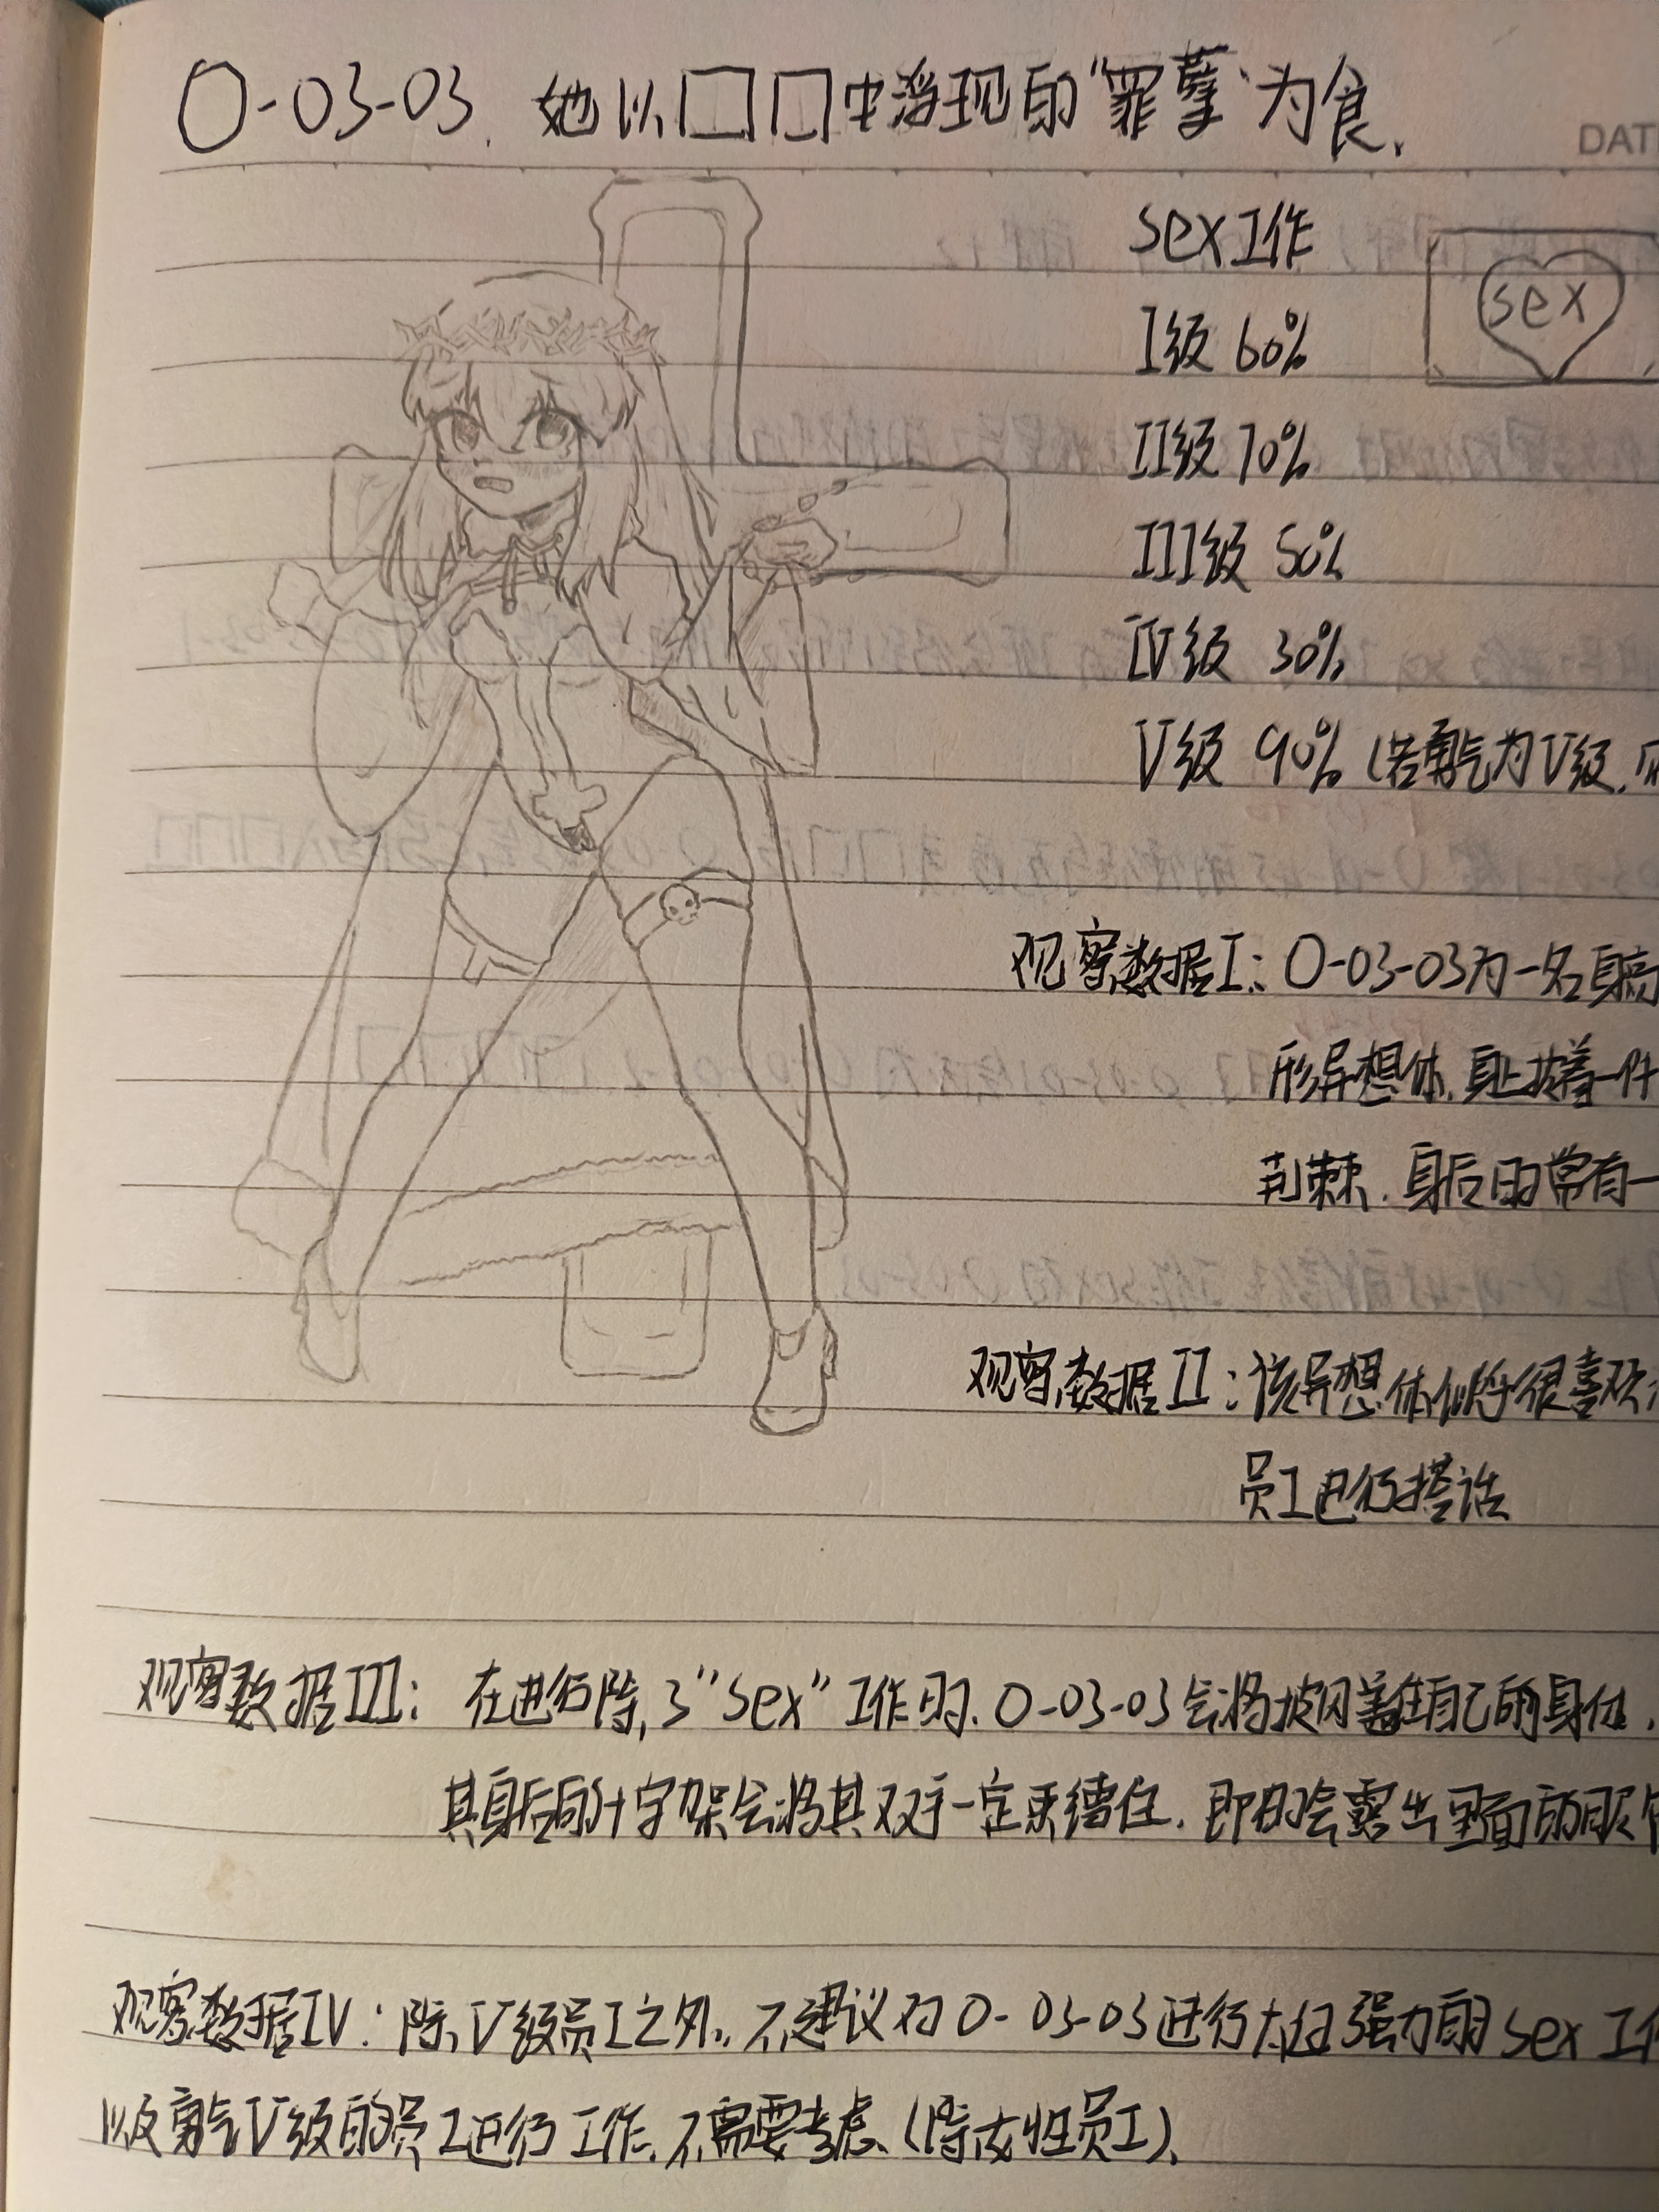 O-03-03. 她以囗囗中浮现的“罪孽”为食.
DAT
sex工作
sex
I级 60%
II级 70%
III级 50%
IV级 30%
V级 90% (若勇气为V级.
观察数据I: O-03-03为一名身高
形异想体. 身上披着一件
荆棘. 身后的常有一
观察数据II: 该异想体似乎很喜欢
员工进行搭话
观察数据III: 在进行除了“sex”工作时. O-03-03会将披风盖住自己的身体.
其身后的十字架会将其双手一定束缚住. 即时会露出里面的服
观察数据IV: 除V级员工之外. 不建议对O-03-03进行太过强力的sex工作
以及勇气V级的员工进行工作. 不需要考虑(除女性员工).